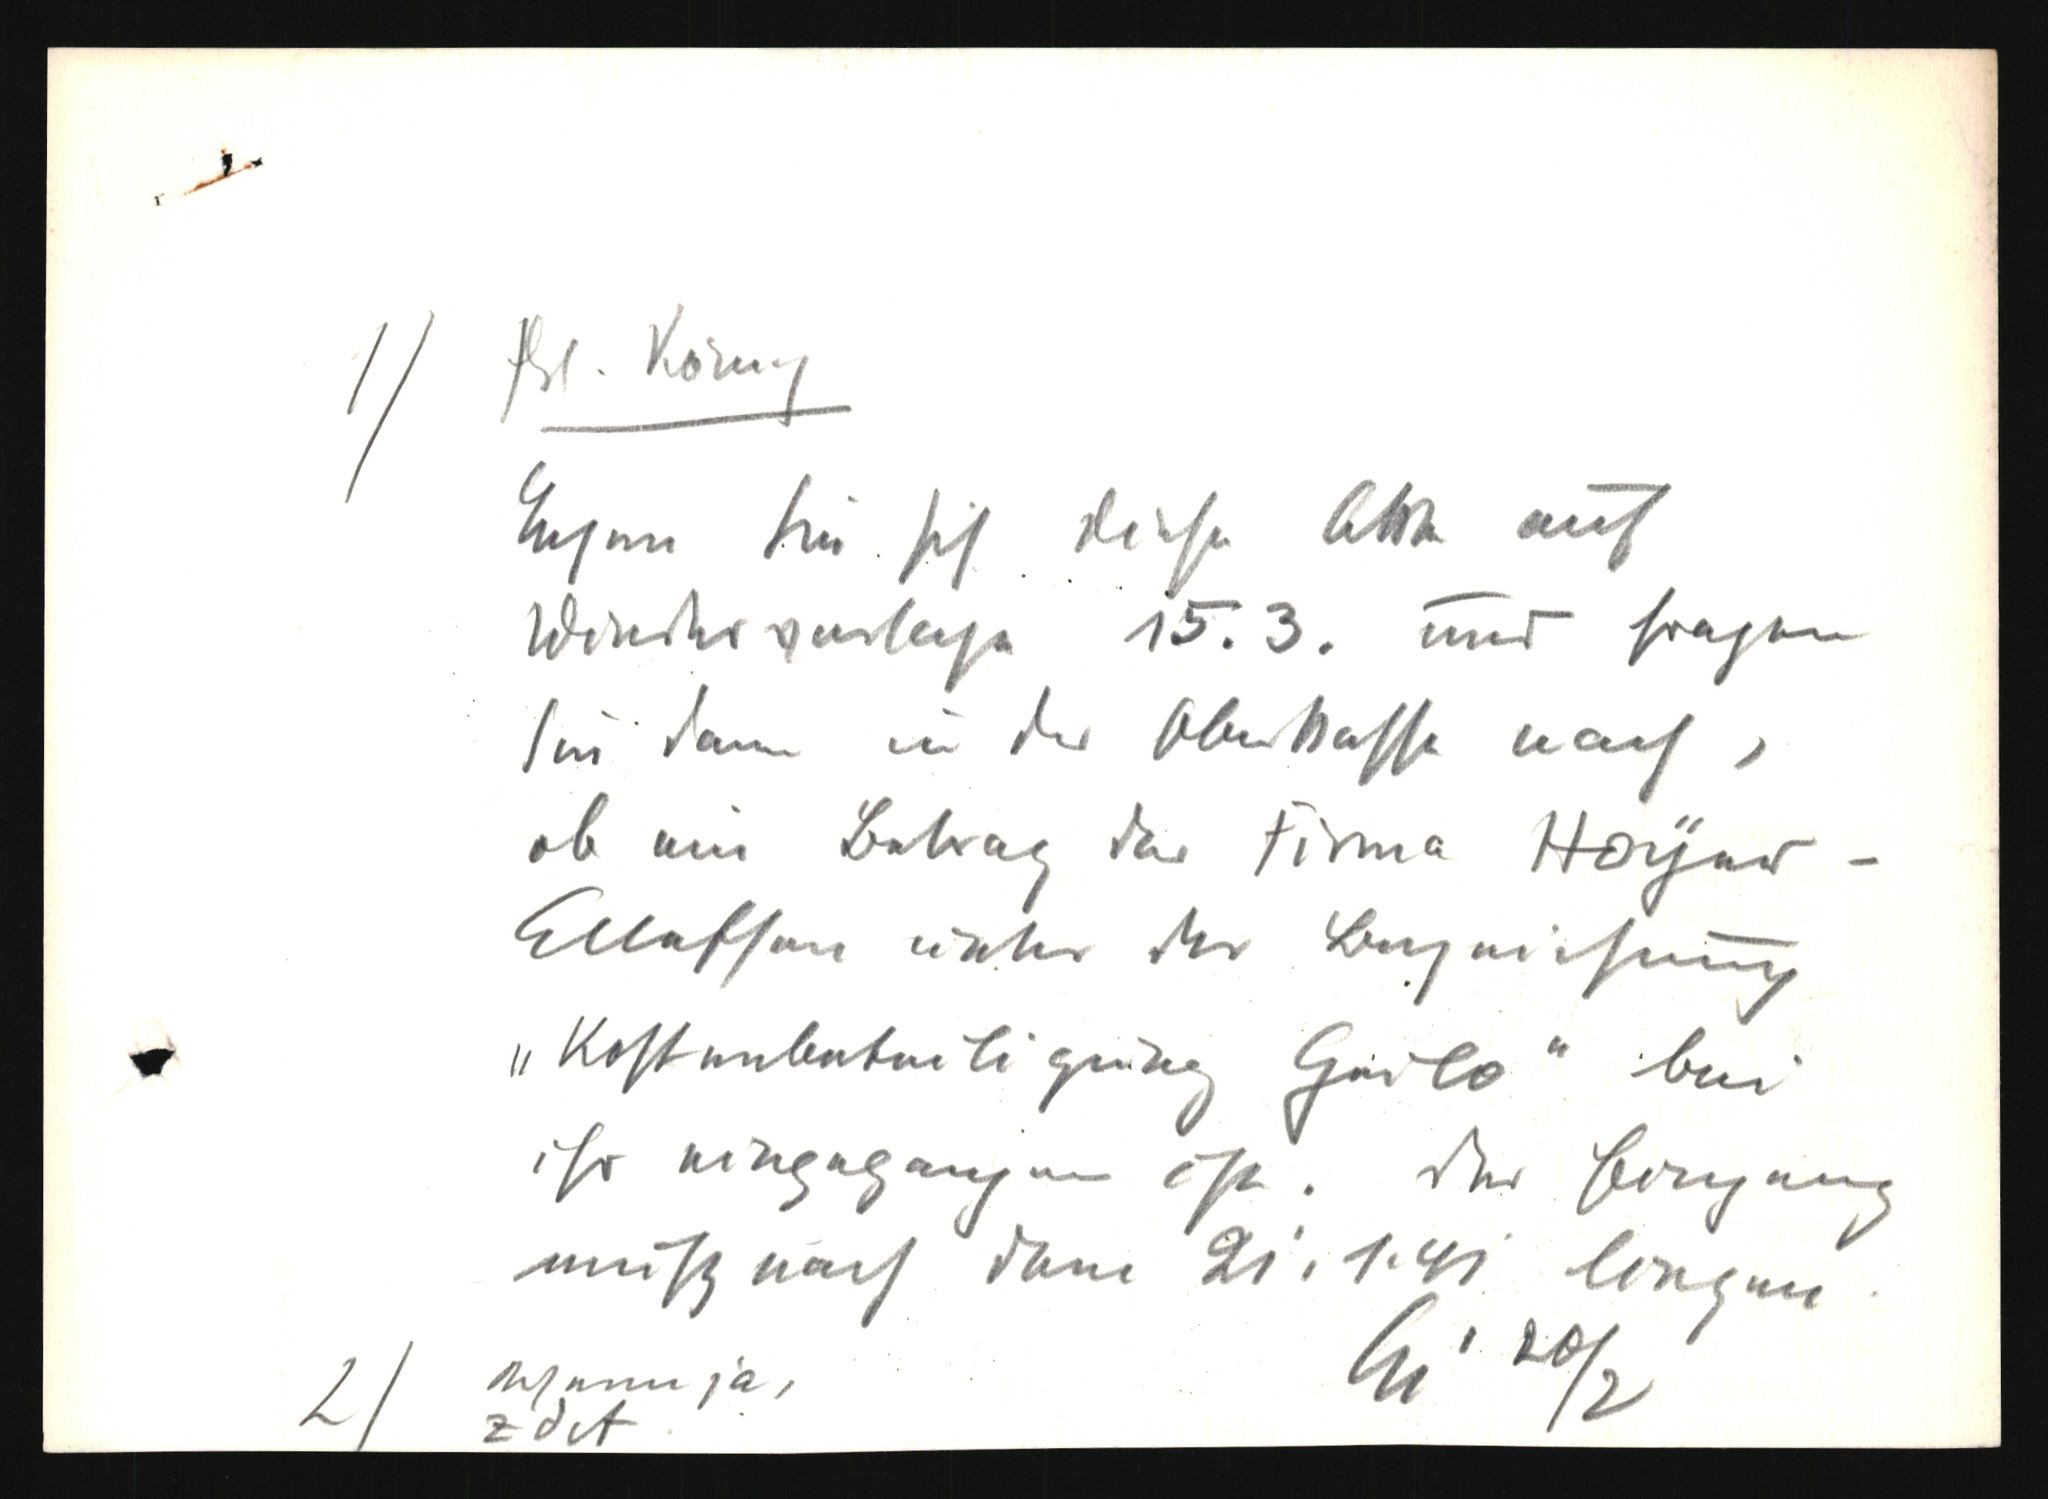 1) Frl. Körny
Legen Sie sich diese Akte auf
Wiedervorlage 15.3. und fragen
Sie dann in der Oberkasse nach,
ob ein Betrag der Firma Höyer-
Ellefsen unter der Bezeichnung
„Kostenbeteiligung Geilo" bei
ihr eingegangen ist. Der Vorgang
muß nach dem 21.1.41 liegen.
20/2
2) wenn ja,
z d A